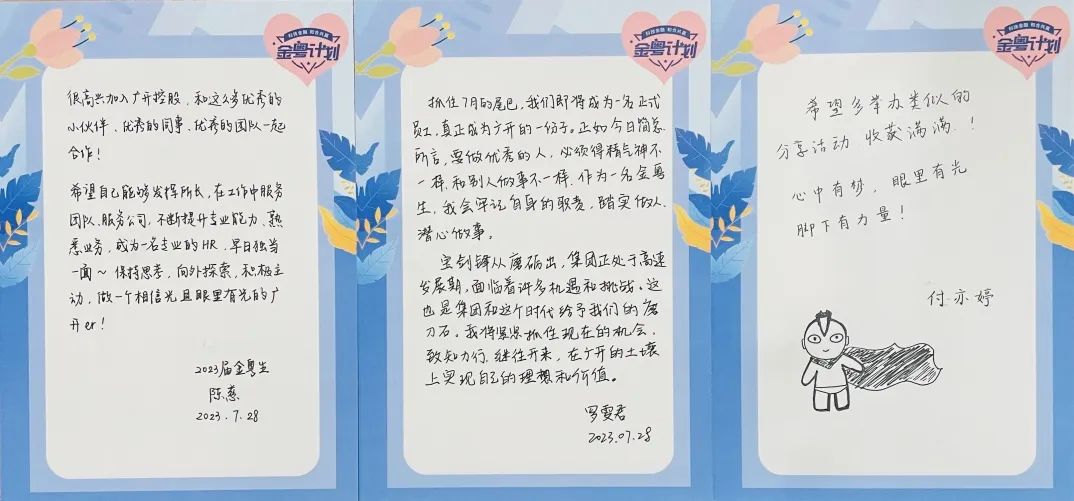 科技金融 和合共赢
金粤计划
很高兴加入广开控股,和这么多优秀的
小伙伴、优秀的同事、优秀的团队一起
合作!
希望自己能够发挥所长,在工作中服务
团队、服务公司,不断提升专业能力、熟
悉业务,成为一名专业的HR,早日独当
一面~ 保持思考,向外探索,积极主
动,做一个相信光且眼里有光的广
开er!
2023届金粤生
陈慈
2023.7.28
科技金融 和合共赢
金粤计划
抓住7月的尾巴,我们即将成为一名正式
员工,真正成为广开的一份子。正如今日简总
所言,要做优秀的人,必须得精气神不
一样,和别人做事不一样。作为一名金粤
生,我会牢记自身的职责,踏实做人、
潜心做事。
宝剑锋从磨砺出,集团正处于高速
发展期,面临着许多机遇和挑战。这
也是集团和这个时代给予我们的磨
刀石。我将紧紧抓住现在的机会,
致知力行,继往开来,在广开的土壤
上实现自己的理想和价值。
罗雯君
2023.07.28
科技金融 和合共赢
金粤计划
希望多举办类似的
分享活动 收获满满!
心中有梦,眼里有光
脚下有力量!
付亦婷